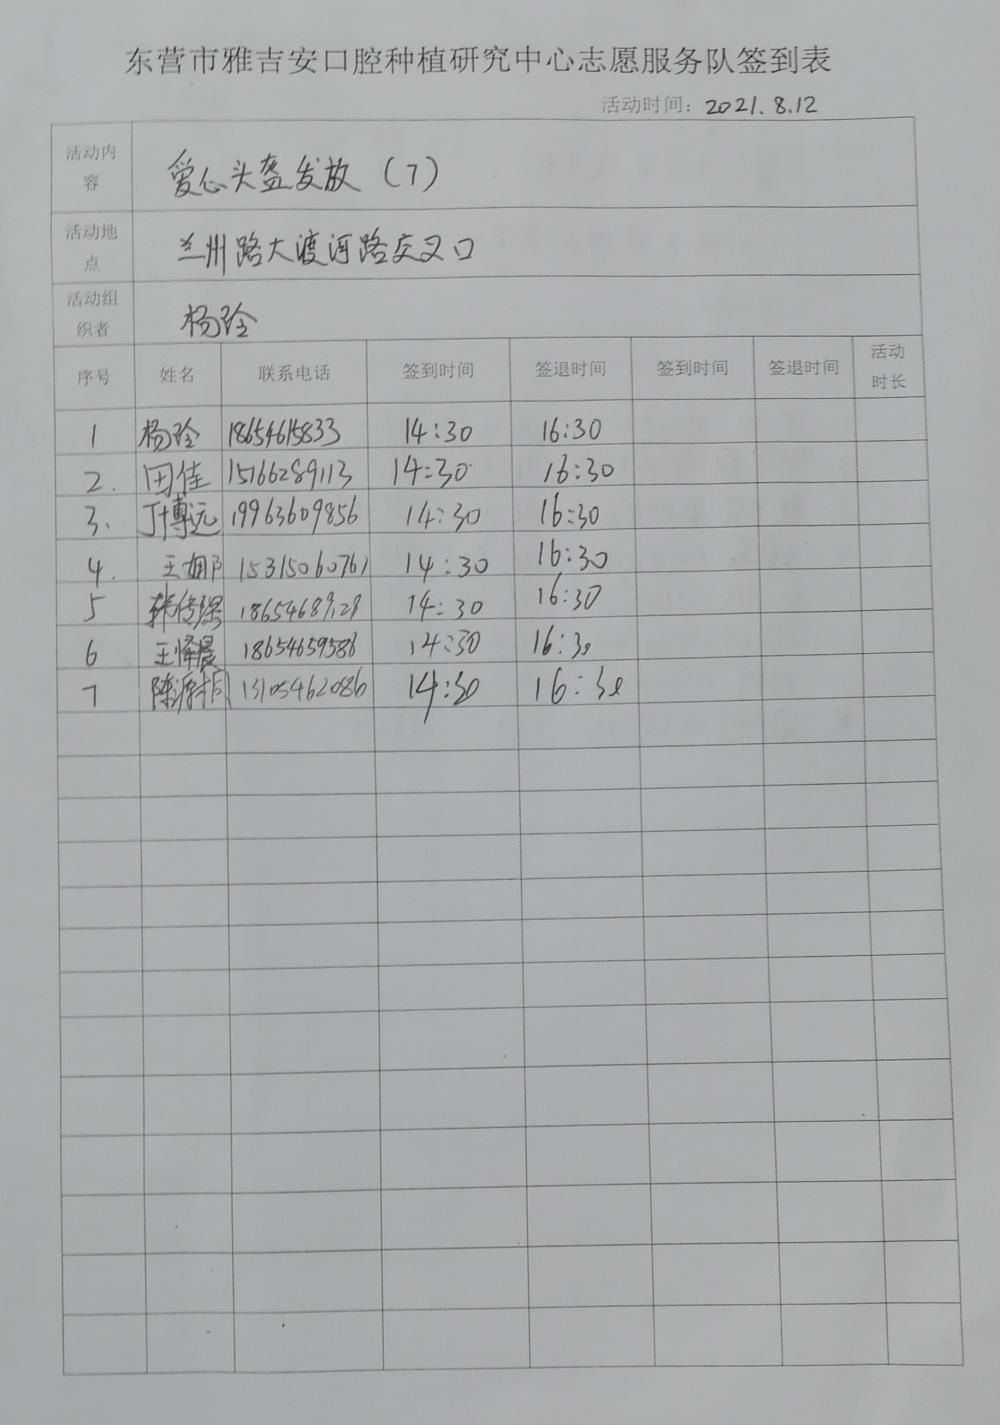 东营市雅吉安口腔种植研究中心志愿服务队签到表
活动时间：2021.8.12
活动内容 爱心头盔发放（7）
活动地点 兰州路大渡河路交叉口
活动组织者 杨玲
序号 姓名 联系电话 签到时间 签退时间 签到时间 签退时间 活动时长
1 杨玲 18654615833 14:30 16:30
2. 田佳 15166289113 14:30 16:30
3、 丁博远 19963609856 14:30 16:30
4. 王娜 15315060761 14:30 16:30
5 韩传琛 14:30 16:30
6 王怿晨 18654659586 14:30 16:30
7 陈源桐 13105462086 14:30 16:30